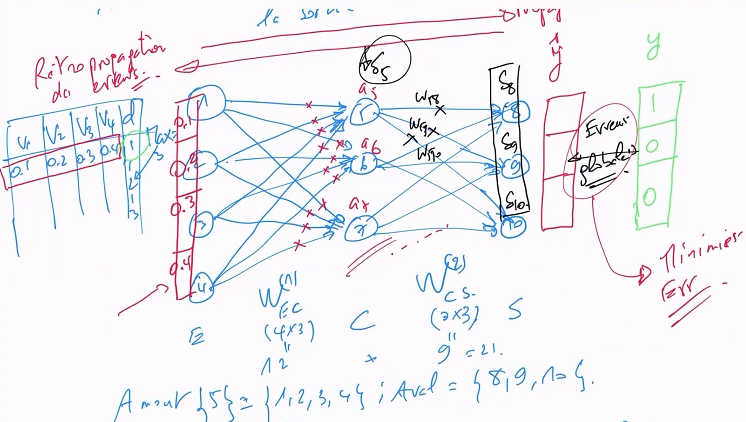 Rétropropagation
des erreurs
V1 V2 V3 V4 d
0.1 0.2 0.3 0.4 1
2
1
3
0.1
0.2
0.3
0.4
1
2
3
4
a5
a6
a7
5
6
7
W58
W59
W510
δ8
δ9
δ10
8
9
10
ŷ
y
1
0
0
Erreur
globale
Minimiser
Err
E
W(1)
EC
(4x3)
"
12
C
+
W(2)
CS
(3x3)
"
9 = 21.
S
Amont {5} = {1,2,3,4} ; Aval = {8,9,10}.